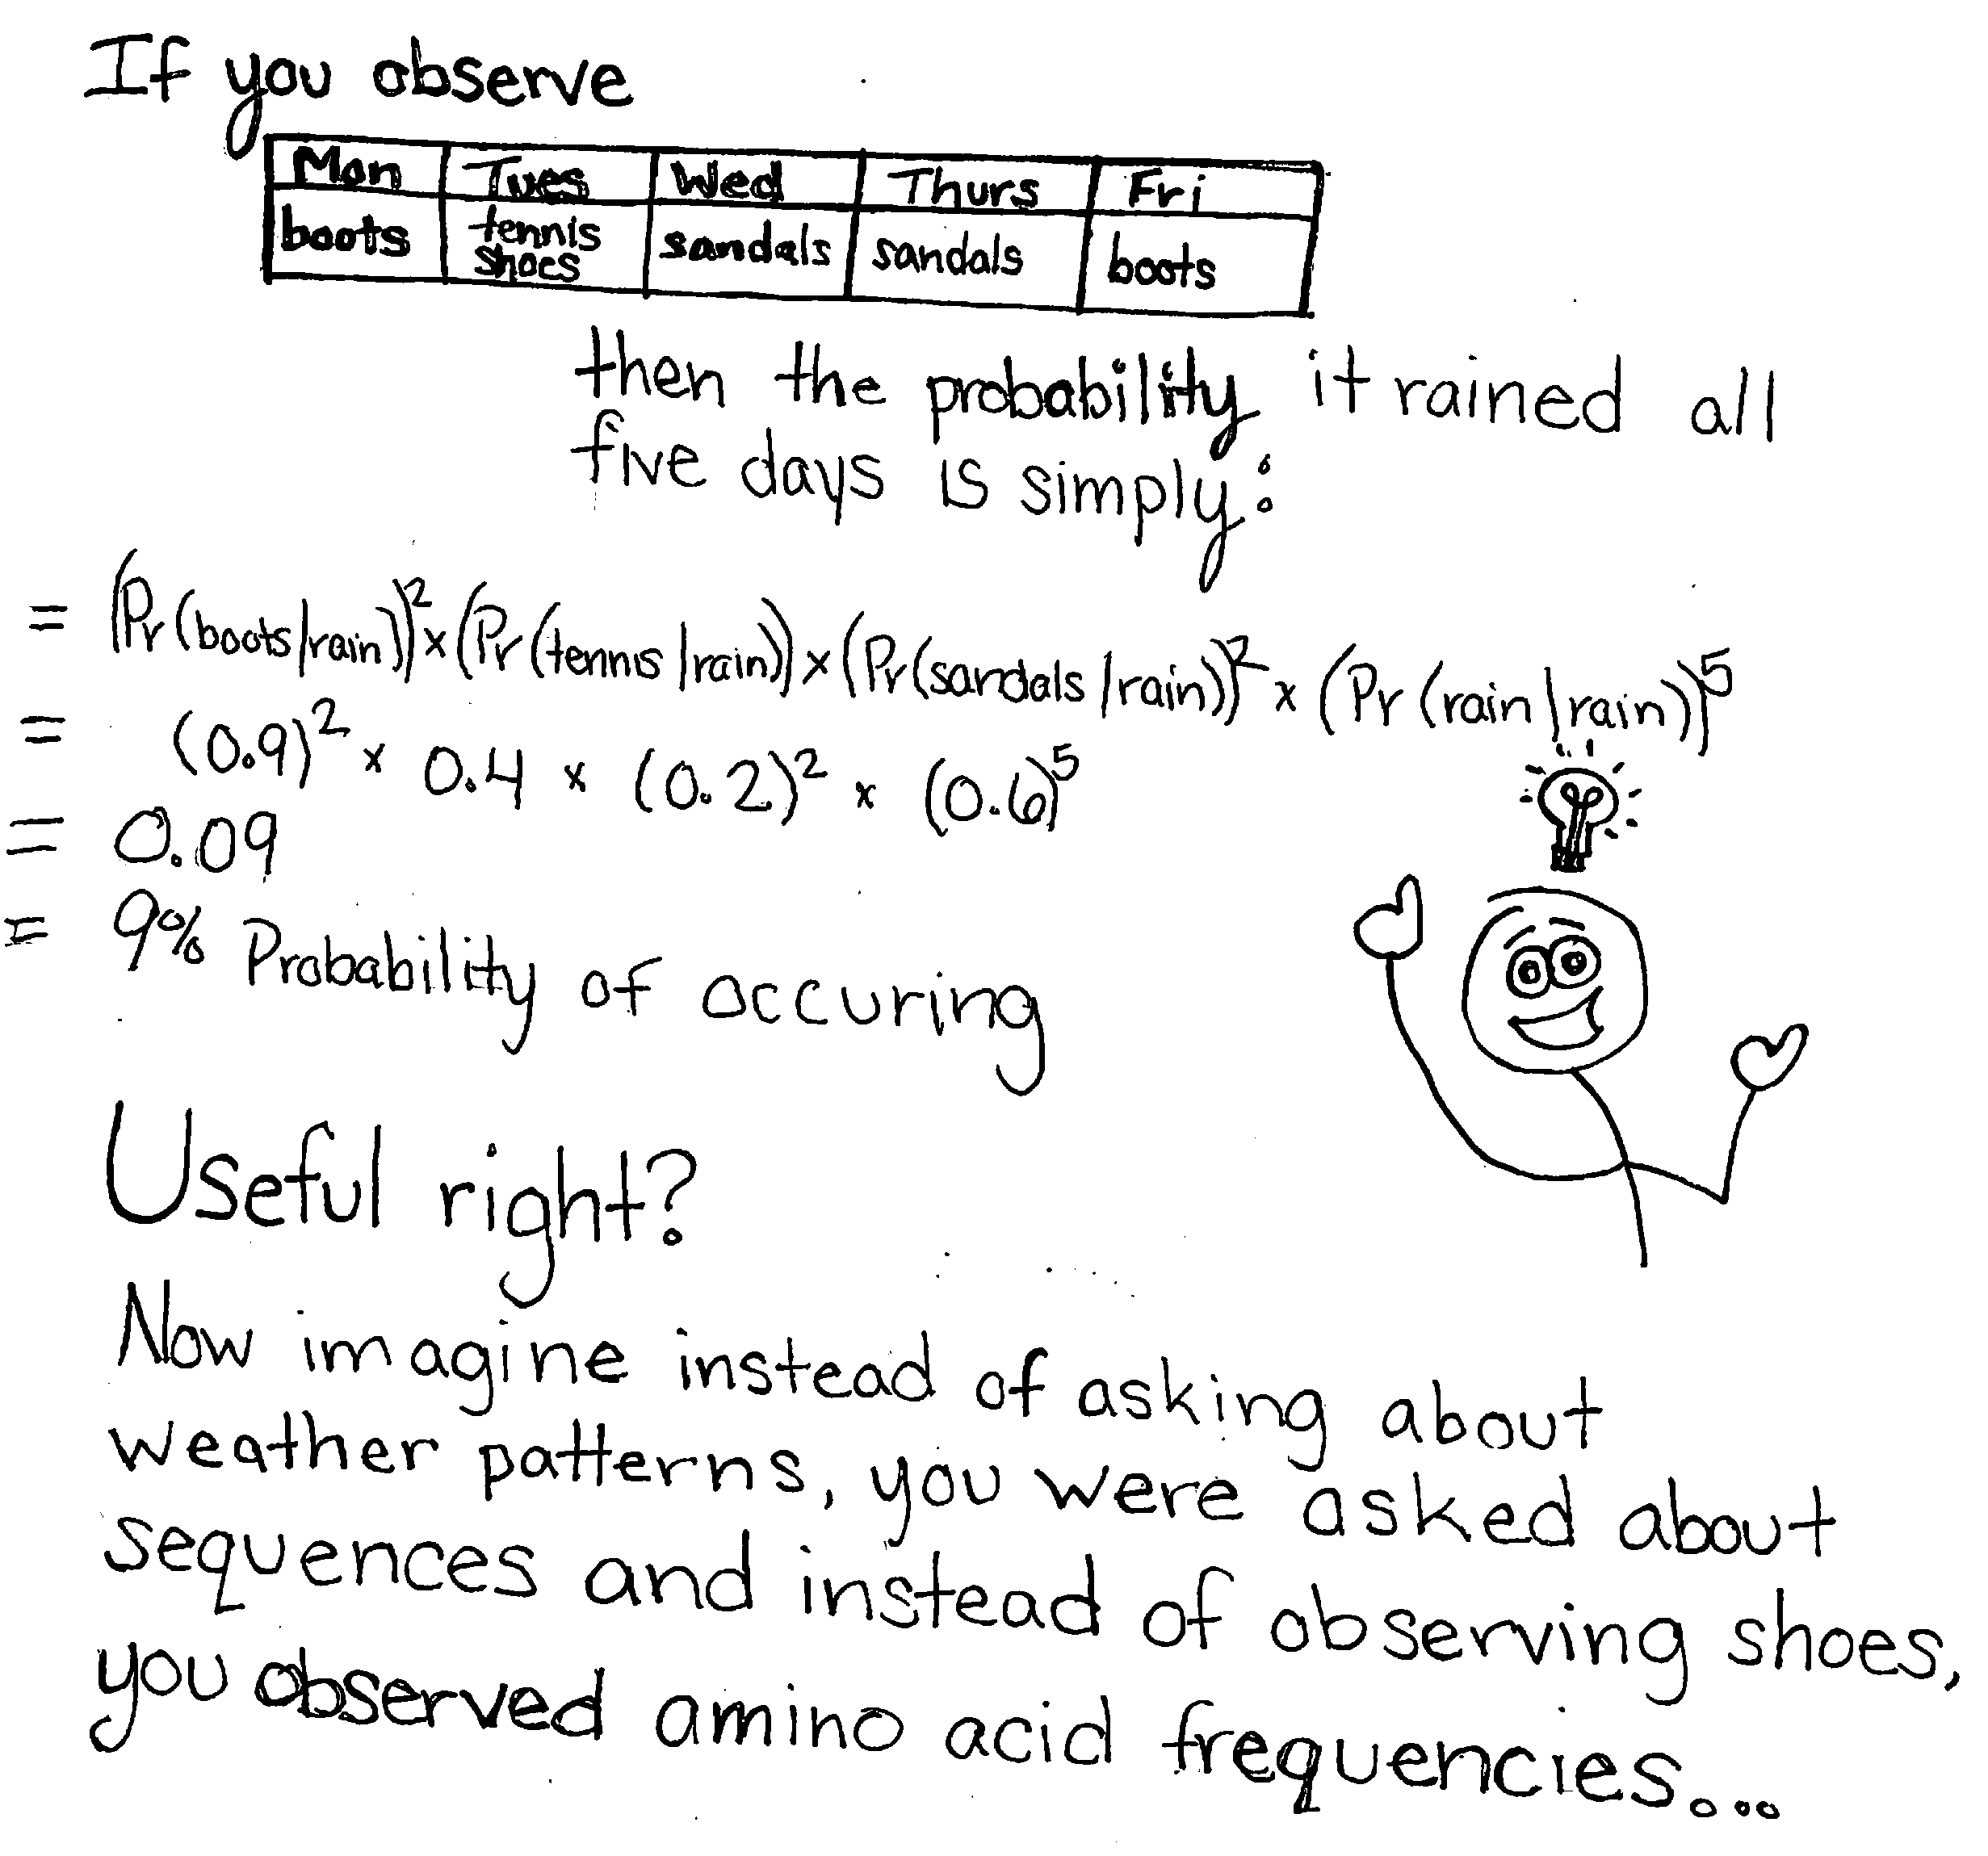 If you observe
Mon Tues Wed Thurs Fri
boots tennis shoes sandals sandals boots
then the probability it rained all
five days is simply:
= (Pr(boots|rain))² × (Pr(tennis|rain)) × (Pr(sandals|rain))² × (Pr(rain|rain))⁵
= (0.9)² × 0.4 × (0.2)² × (0.6)⁵
= 0.09
= 9% Probability of occuring
Useful right?
Now imagine instead of asking about
weather patterns, you were asked about
sequences and instead of observing shoes,
you observed amino acid frequencies...